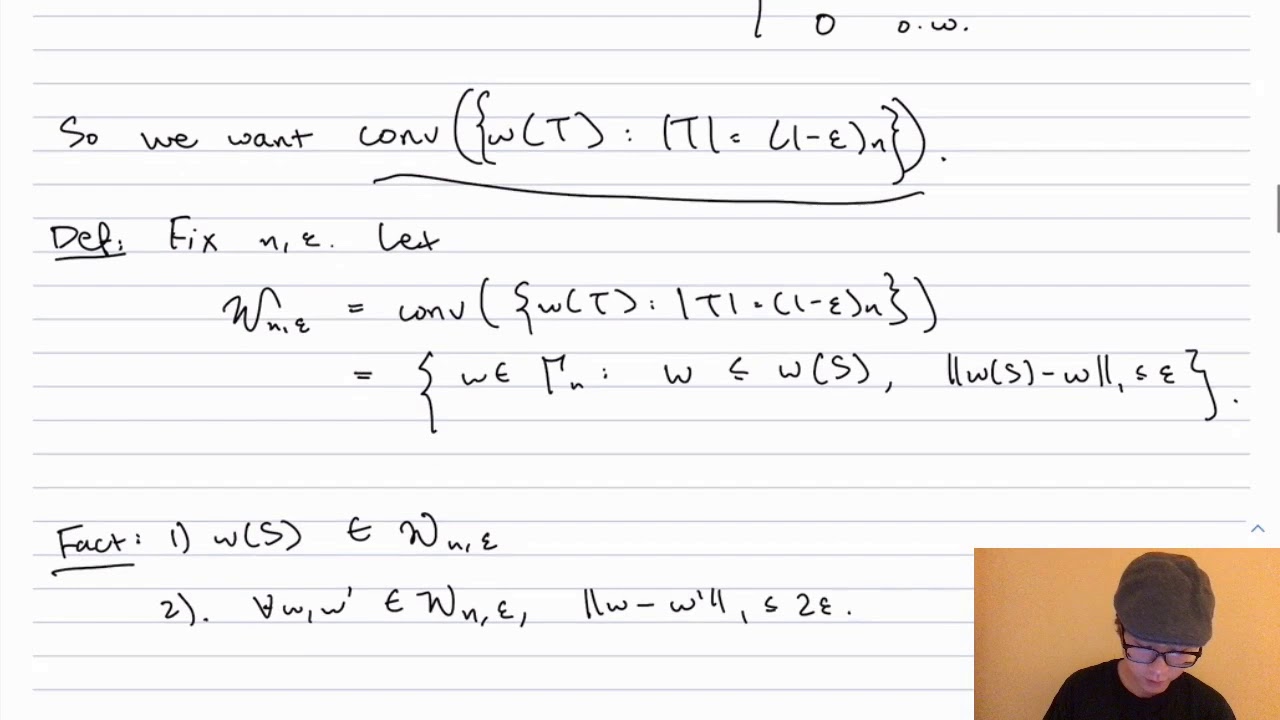 0 o.w.
So we want conv({w(T) : |T| = (1-ε)n}).
Def: Fix n, ε. Let
𝒲n,ε = conv({w(T) : |T| = (1-ε)n})
= {w ∈ Γn : w ≤ w(S), ||w(S) - w||₁ ≤ ε}.
Fact: 1) w(S) ∈ 𝒲n,ε
2). ∀w, w' ∈ 𝒲n,ε, ||w - w'||₁ ≤ 2ε.